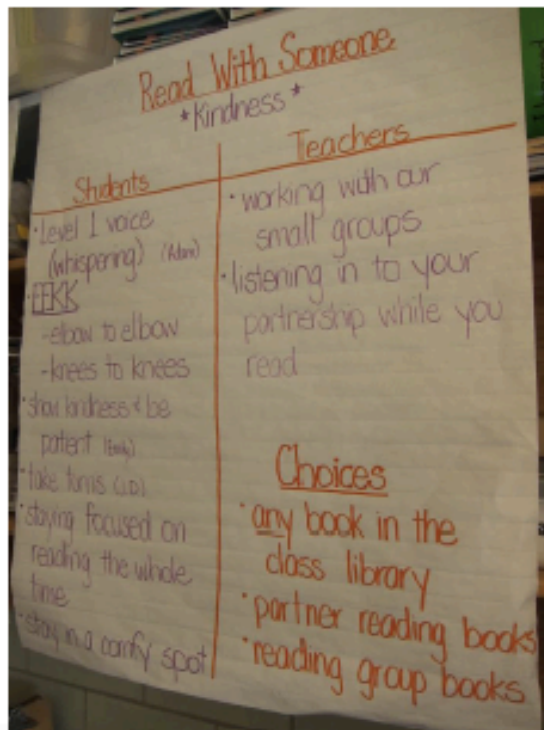 Read With Someone
*Kindness*
Students
• Level 1 voice
(whispering) (Adam)
• EEKK
-elbow to elbow
-knees to knees
• show kindness & be
patient (Emily)
• take turns (J.D.)
• staying focused on
reading the whole
time
• stay in a comfy spot
Teachers
• working with our
small groups
• listening in to your
partnership while you
read
Choices
• any book in the
class library
• partner reading books
• reading group books